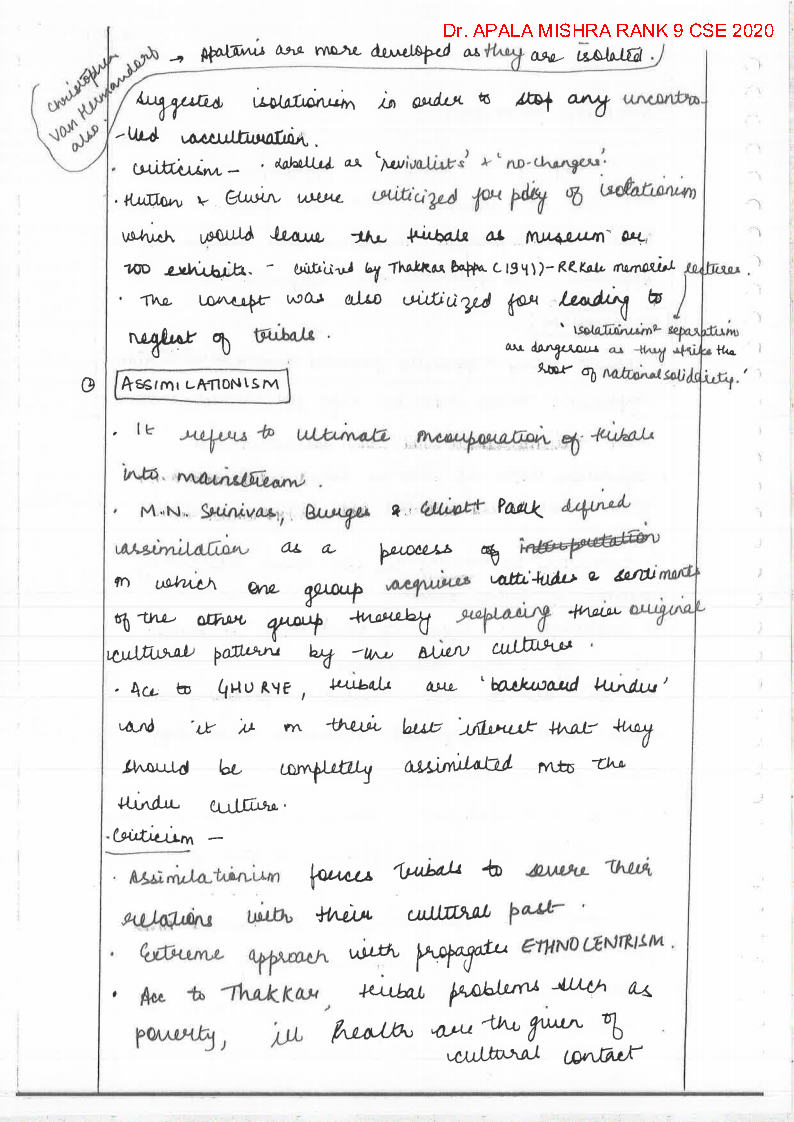 Dr. APALA MISHRA RANK 9 CSE 2020
Christopher
Van Hermandorf
also.
→ Apatanis are more developed as they are isolated.
suggested isolationism in order to stop any uncontro-
-lled acculturation.
· criticism – · labelled as 'revivalists' & 'no-changers'.
· Hutton & Elwin were criticized for policy of isolationism
which would leave the tribals as museum or
zoo exhibits. - criticized by Thakkar Bappa (1941) - RR Kale memorial lectures.
· The concept was also criticized for leading to
neglect of tribals.
'isolationism & separatism
are dangerous as they strike the
root of national solidariety.'
ASSIMILATIONISM
· It refers to ultimate incorporation of tribals
into mainstream.
· M.N. Srinivas, Burges & Elliott Park defined
assimilation as a process of interpretation
in which one group acquires attitudes & sentiments
of the other group thereby replacing their original
cultural patterns by the alien cultures.
· Acc to GHURYE, tribals are 'backward Hindus'
and it is in their best interest that they
should be completely assimilated into the
Hindu culture.
· Criticism –
· Assimilationism forces Tribals to severe their
relations with their cultural past.
· Extreme approach with propagates ETHNOCENTRISM.
· Acc to Thakkar, tribal problems such as
poverty, ill health are the given of
cultural contact